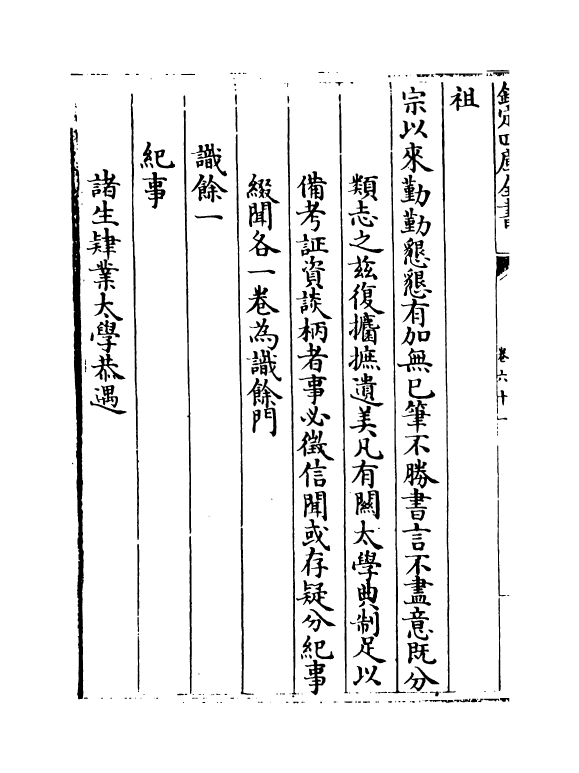 欽定四庫全書
卷六十一
祖
宗以來勤勤懇懇有加無已筆不勝書言不盡意既分
類志之茲復攟摭遺美凡有闗太學典制足以
備考証資談柄者事必徵信聞或存疑分紀事
綴聞各一卷為識餘門
識餘一
紀事
諸生肄業太學恭遇